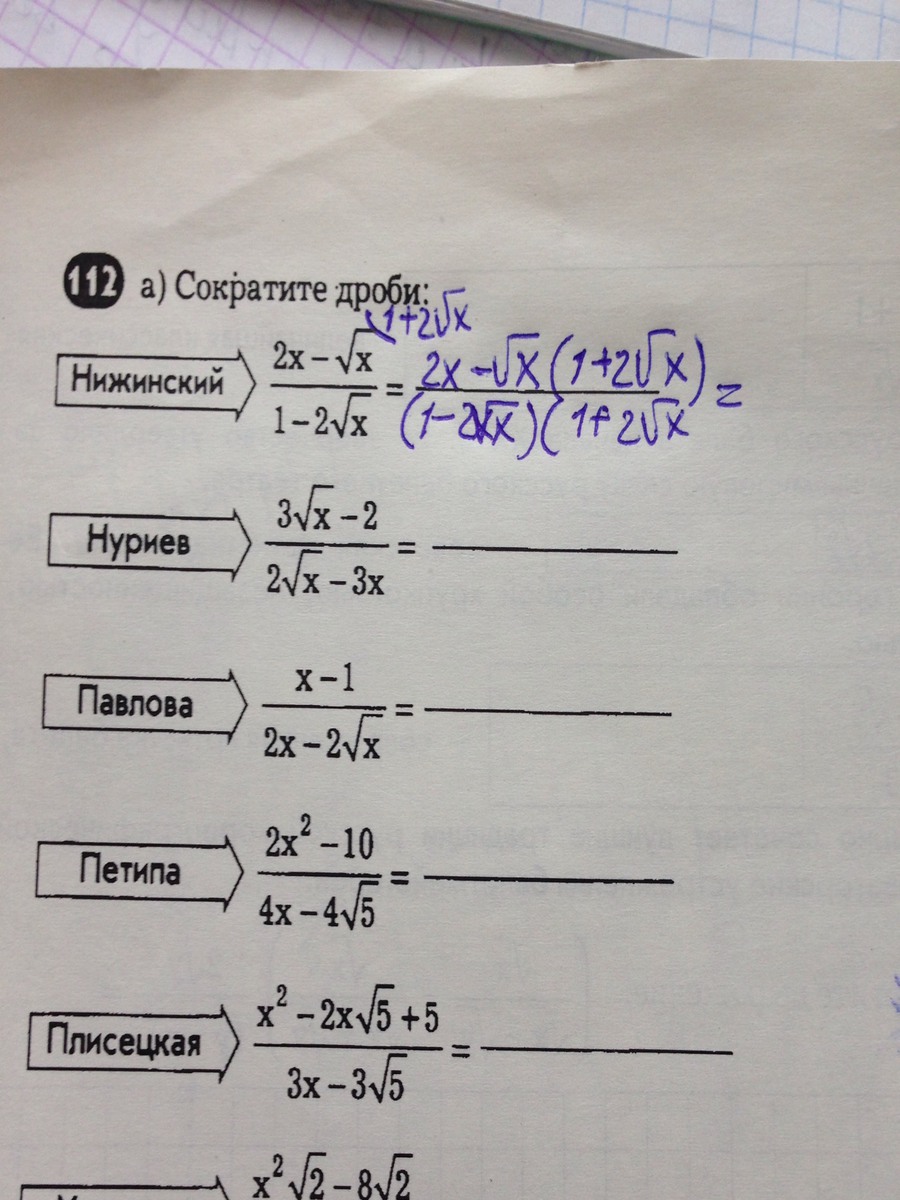 112 а) Сократите дроби:
1+2√x
Нижинский (2x − √x)/(1 − 2√x) = (2x − √x(1+2√x))/((1−2√x)(1+2√x) =
Нуриев (3√x − 2)/(2√x − 3x) =
Павлова (x − 1)/(2x − 2√x) =
Петипа (2x² − 10)/(4x − 4√5) =
Плисецкая (x² − 2x√5 + 5)/(3x − 3√5) =
x²√2 − 8√2